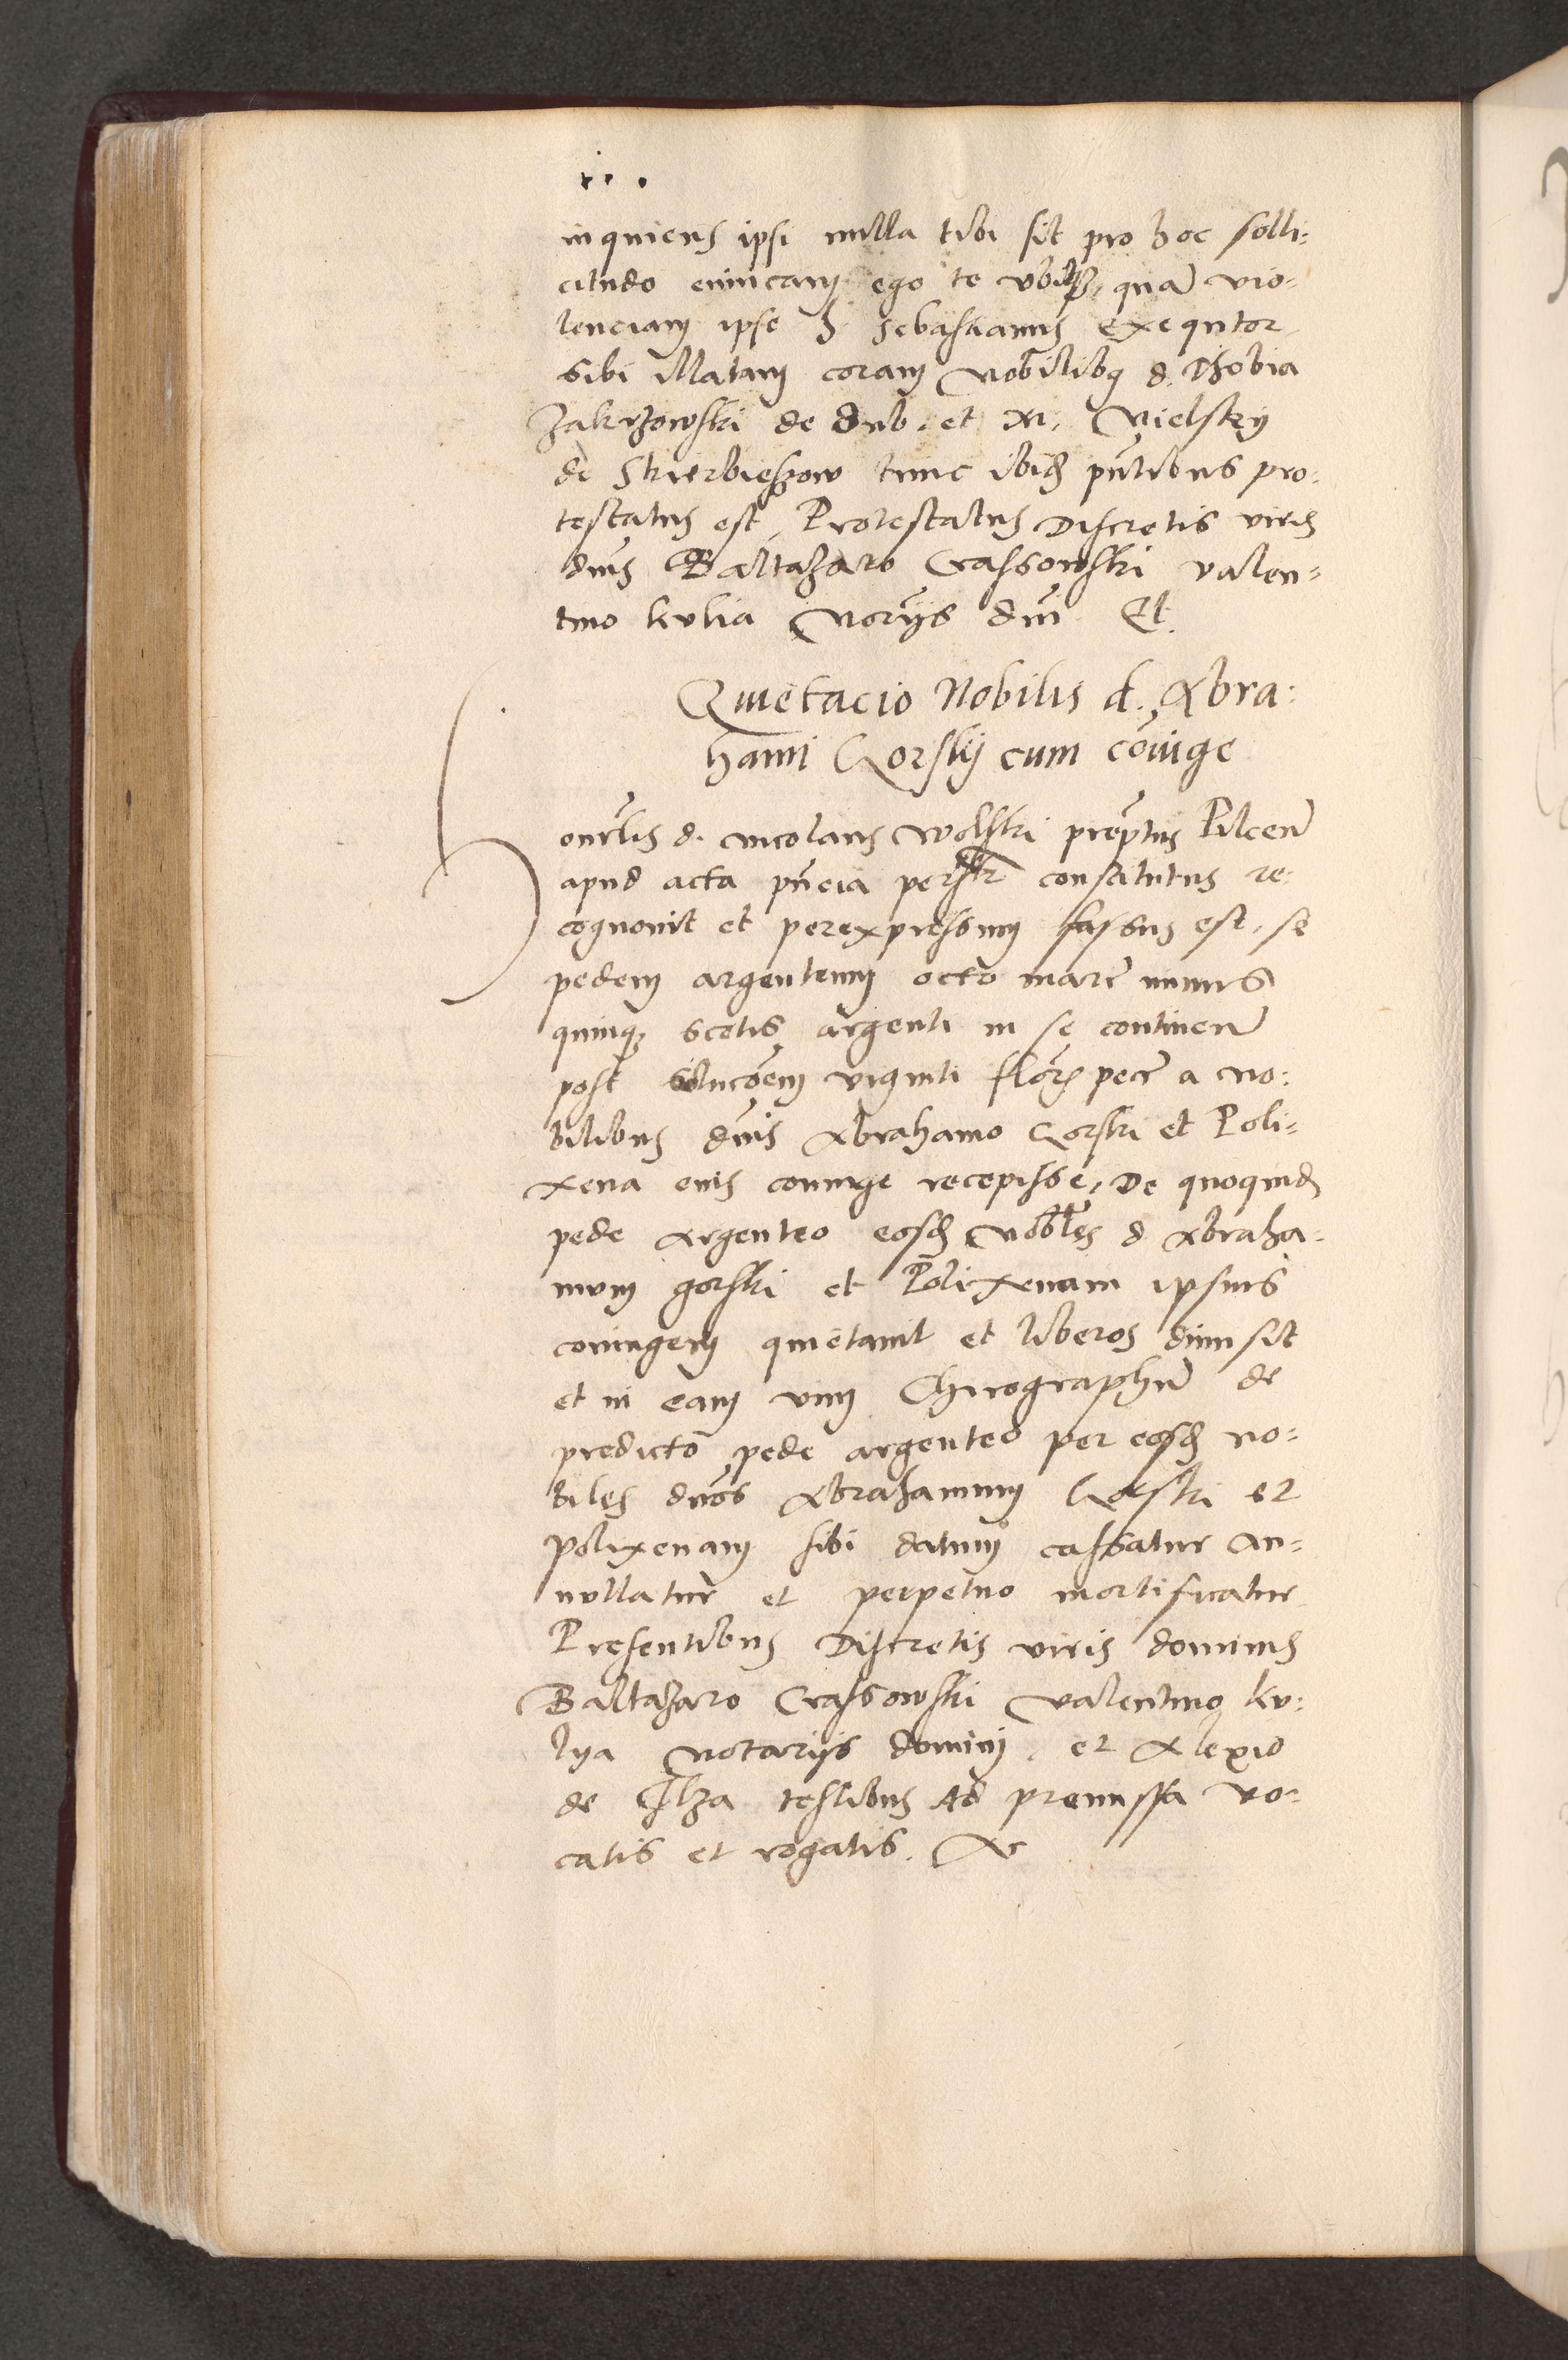 inquiens ipsi nulla tibi sit pro hoc solli:
citudo evincam ego te ubilʒ, quā vio:
lenciam ipse S Sebastianus exequtor
sibi illatam coram Nobilibq d. Thobia
Zakrzowski de Dub. et Nielsky
de Skierbieszow tunc ibidē pñtibus pro:
testatus est. Protestatus Discretis viris
dnis Baltazaro Crassowski valen:
tino kulia Norijs dni Et
Quietacio Nobilis d. Abra:
hami Gorskij cum cōiuge
Honrlis d. nicolaus Wolski preptus Pilcen
apud acta pñcia perslr constitutus re:
cognovit et perexpressum fassus est, se
pedem argenteum octo marc minus
quinqʒ scotis argenti in se continen
post solucōem viginti flor pec a no:
bilibus dnis Abrahamo Gorski et Poli:
xena eius coniuge recepisse, De quoquidē
pede Argenteo eosdē Nobles d Abraha:
mum gorski et Polixenam ipsius
coniugem quietavit et liberos dimisit
et in eam vim Chirographū de
predicto pede argenteo per eosdē no:
biles dnos Abrahamum Gorski et
polixenam sibi datum cassatur an:
nullatur et perpetuo mortificatur
Presentibus Discretis viris dominis
Baltazaro Crassowski Valentino ku:
lya Notarijs domini, et Alexio
de Ilza testibus Ad premissa vo:
catis et rogatis. &c